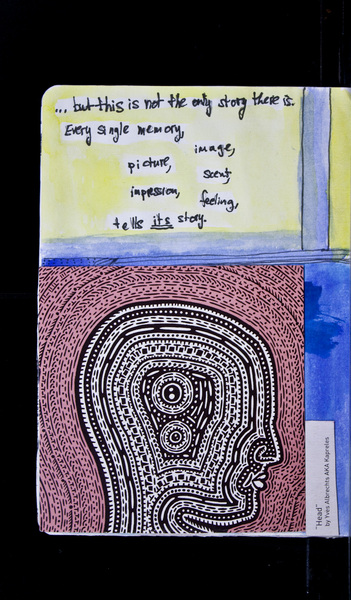 ... but this is not the only story there is.
Every single memory,
image,
picture,
scent,
impression,
feeling,
tells its story.
"Head"
by Yves Albrechts AKA Kapreles